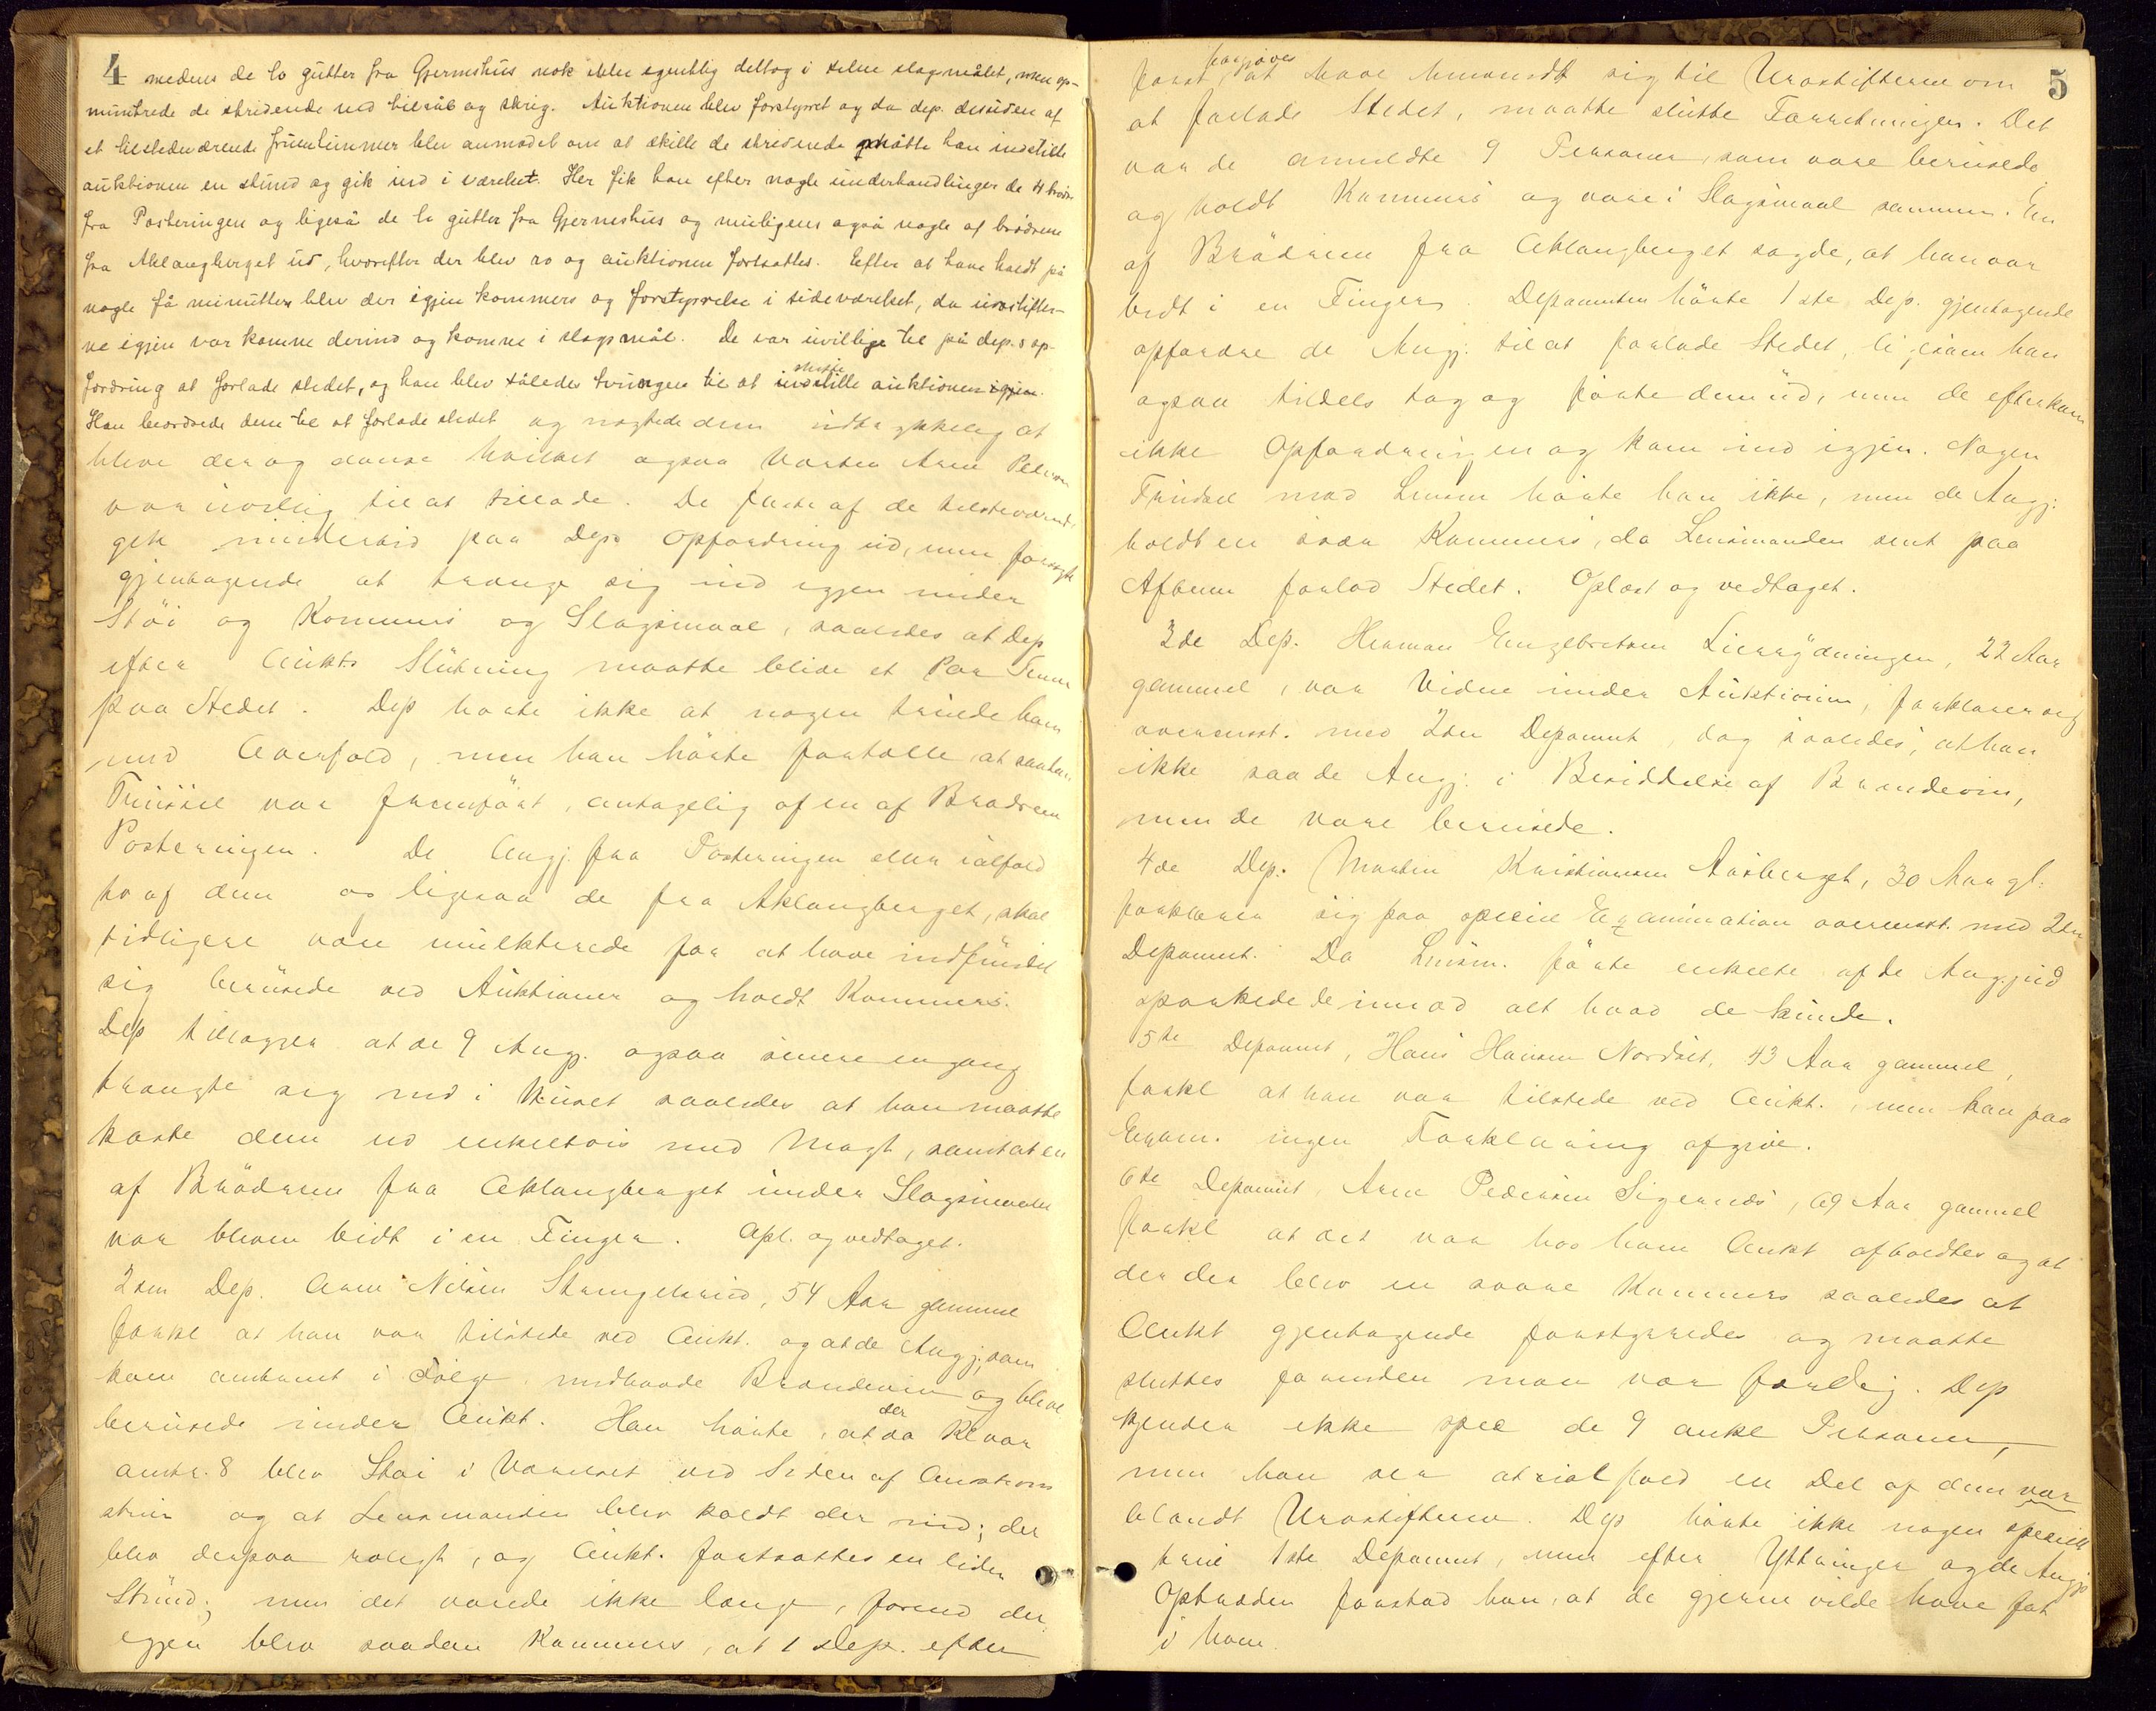 4
medens de to gutter fra Gjerneshus nok ikke egentlig deltog i selve slagsmålet, men op-
muntrede de stridende ved tilråb og skrig. Auktionen blev forstyrret og da dep. desuden af
et tilstedeværende fruentimmer blev anmodet om at skille de stridende måtte han indstille
auktionen en stund og gik ind i værelset. Her fik han efter nogle underhandlinger de 4 brødre
fra Posteringen og ligeså de to gutter fra Gjerneshus og muligens også nogle af brødrene
fra Aklangberget ud, hvorefter der blev ro og auktionen fortsattes. Efter at have holdt på
nogle få minutter blev der igjen kommers og forstyrrelse i sideværelset, da urostifter-
ne igjen var komne derind og komne i slagsmål. De var uvillige til på dep.s op-
fordring at forlade stedet, og han blev således tvungen til at indstille slutte auktionen igjen.
Han beordrede dem til at forlade stedet og nægtede dem udtrykkelig at
blive der og danse hvilket ogsaa Værten Arne Pedersen
var uvillig til at tillade. De fleste af de tilstedeværende
gik imidlertid paa Deps Opfordring ud, men forsøgte
gjentagende at trænge sig ind igjen under
Støi og Kommers og Slagsmaal, saaledes at Dep
efter Aukts Slutning maatte blive et Par Timer
paa Stedet. Dep hørte ikke at nogen truede ham
med Overfald, men han hørte fortælle at saadan
Trudsel var fremført, antagelig af en af Brødrene
Posteringen. De Angj. fra Posteringen eller ialfald
to af dem og ligesaa de fra Aklangberget, skal
tidligere være mulkterede for at have indfundet
sig berusede ved Auktioner og holdt Kommers.
Dep tillægger at de 9 Angj. ogsaa senere engang
trængte sig ind i Huset saaledes at han maatte
kaste dem ud enkeltvis med Magt, samt at en
af Brødrene fra Aklangberget under Slagsmaalet
var bleven bidt i en Finger. Opl. og vedtaget.
2den Dep. Arne Nilsen Strengelsrud, 54 Aar gammel
forkl at han var tilstede ved Aukt. og at de Angj, som
kom omtrent i Følge medhavde Brændevin og bleve
berusede under Aukt. Han hørte, at da der Kl var
omtr. 8 blev Støi i Værelset ved Siden af Auktions
stuen og at Lensmanden blev kaldt der ind; der
blev derpaa roligt, og Aukt. fortsattes en liden
Stund; men det varede ikke længe, førend der
igjen blev saadan Kommers, at 1 Dep. efter
5
først forgjæves at have henvendt sig til Urostifterne om
at forlade Stedet, maatte slutte Forretningen. Det
var de anmeldte 9 Personer, som vare berusede
og holdt Kommers og vare i Slagsmaal sammen. En
af Brødrene fra Aklangberget sagde, at han var
bidt i en Finger. Deponenten hørte 1ste Dep. gjentagende
opfordre de Angj. til at forlade Stedet, ligesom han
ogsaa tildels tog og førte dem ud, men de efterkom
ikke Opfordringen og kom ind igjen. Nogen
Trudsel mod Lensm hørte han ikke, men de Angj.
holdt en svær Kommers, da Lensmanden sent paa
Aftenen forlod Stedet. Oplæst og vedtaget.
3de Dep. Herman Engebretsen Lierrydningen, 22 Aar
gammel, var Vidne under Auktionen, forklarer sig
overensst. med 2den Deponent, dog saaledes, at han
ikke saa de Angj. i Besiddelse af Brændevin,
men de vare berusede.
4de Dep. Morten Kristiansen Aasberget, 30 Aar gl.
forklarer sig paa speciel Examination overensst. med 2den
Deponent. Da Lensm. førte enkelte af de Angj. ud
sparkede de imod alt hvad de kunde.
5te Deponent, Hans Hansen Nordset, 43 Aar gammel,
forkl at han var tilstede ved Aukt., men kan paa
Exam. ingen Forklaring afgive.
6te Deponent, Arne Pedersen Sigernæs, 69 Aar gammel
forkl at det var hos ham Aukt afholdtes og at
der der blev en svare Kommers saaledes at
Aukt gjentagende forstyrredes og maatte
sluttes forinden man var færdig. Dep
kjender ikke spec de 9 ankl Personer,
men han ser at ialfald en Del af dem var
blandt Urostifterne. Dep hørte ikke nogen specielt
true 1ste Deponent, men efter Yttringer og de Angjs
Optræden forstod han, at de gjerne vilde have fat
i ham.